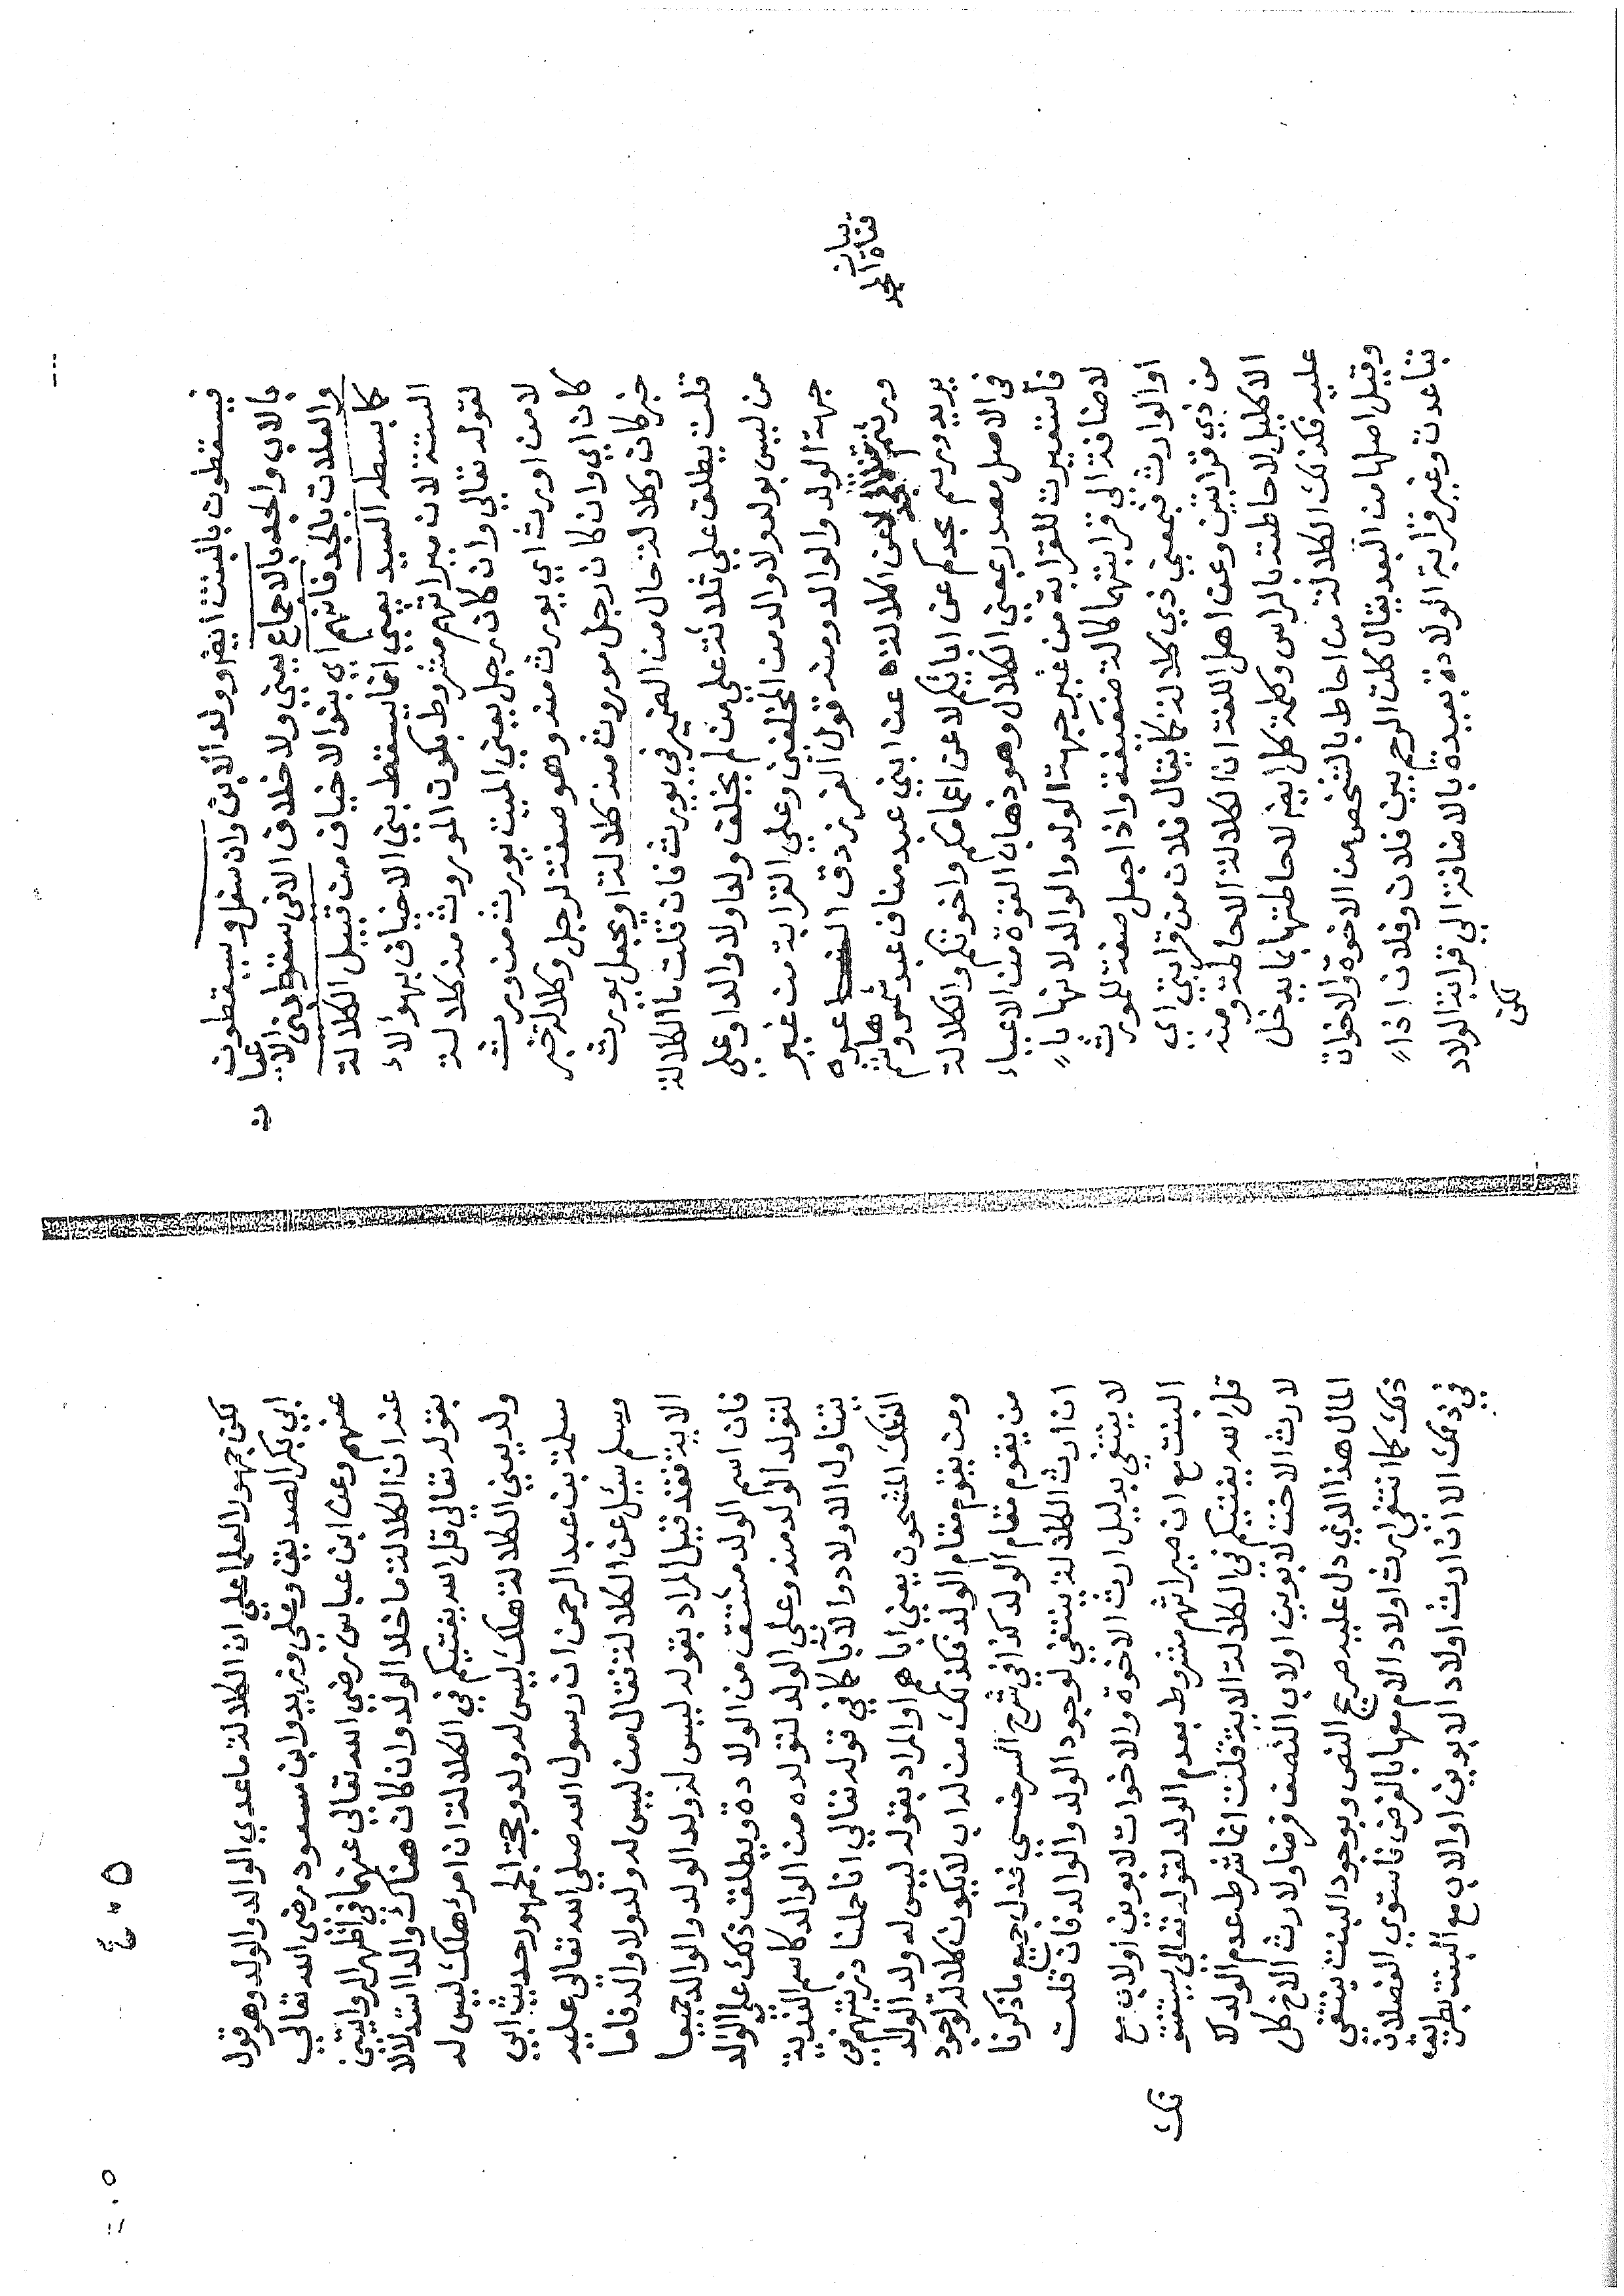 فيسقطون بالبنت ايضا وولد الابن وان سفل ويسقطون
بالاب والجد بالاجماع يعني ولا خلاف الا في سقوط بني الاعيان
والعلات بالجد فانهم اي بنوا الاخياف من قبيل الكلالة
كما بسطه السيد يعني انما يسقط بني الاخياف بهولاء
الستة لان ميراثهم مشروط بكون الموروث منه كلالة
لقوله تعالي وان كان رجل يعني الميت يورث من ورث
لا من اورث اي يورث منه وهو صفة لرجل وكلالة خبر
كان اي وان كان رجل موروث منه كلالة او يجعل يورث
خبر كان وكلالة حال من الضمير في يورث فان قلت ما الكلالة
قلت يطلق علي ثلاثة علي من لم يخلف ولدا ولا والدا وعلي
من ليس بولد ولا والد من المخلفين وعلي القرابة من غير
جهة الولد والوالد ومنه قول الفرزدق
ورثتم قناة المجد لا عن كلالة عن ابني عبد مناف عبد شمس وهاشم
يريد ورسم مجدكم عن ابائكم لا عن اعمامكم واخوتكم والكلالة
في الاصل مصدر بمعني الكلال وهو ذهاب القوة من الاعياء
فاستعيرت للقرابة من غير جهة الولد والوالد لانها بالا
لاضافة الي قرابتهما كالة ضعيفة واذا جعل صفة للموروث
او الوارث فبمعني ذي كلالة كما يقال فلان من قرابتي اي
من ذي قرابتي وعن اهل اللغة ان الكلالة الاحاطة ومنه
الاكليل لاحاطته بالراس وكلمة كل ايضا لاحاطتها بما يدخل
عليه فكذلك الكلالة من احاط بالشخص من الاخوة والاخوات
وقيل اصلها من البعد يقال كلت الرحم بين فلان وفلان اذا
تباعدت وغير قرابة الولادة بعيدة بالاضافة الي قرابة الولاد
لكن
بيان
قناة المجد
٤٠٥
لكن جمهور العلما علي ان الكلالة ما عدي الوالد والولد وهو قول
ابي بكر الصديق وعلي وزيد وابن مسعود رضي الله تعالي
عنهم وعن ابن عباس رضي الله تعالي عنهما في اظهر الروايتين
عنه ان الكلالة ما خلا الولد وان كان هناك والد استدلالا
بقوله تعالي قل الله يفتيكم في الكلالة ان امرؤ هلك ليس له
ولد يعني الكلالة هلك ليس له ولد وحجة الجمهور حديث ابي
سلمة بن عبد الرحمن ان رسول الله صلي الله تعالي عليه
وسلم سئل عن الكلالة فقال من ليس له ولد ولا والد فاما
الاية فقد قيل المراد بقوله ليس له ولد الولد والوالد جميعا
فان اسم الولد مشتق من الولادة ويطلق ذلك علي الوالد
لتولد الولد منه وعلي الولد لتولده من الوالد كاسم الذرية
يتناول الاولاد والابا كما في قوله تعالي انا حملنا ذريتهم في
الفلك المشحون يعني اباهم او المراد بقوله ليس له ولد الولد
ومن يقوم مقام الولد فكذلك من له اب لا يكون كلالة لوجود
من يقوم مقام الولد كذا في شرح السرخسي فدل جميع ما ذكرنا
ان ارث الكلالة ينتفي لوجود الولد والوالد فان قلت
لا ينتفي بدليل ارث الاخوة والاخوات لابوين او لاب مع
البنت مع ان ميراثهم مشروط بعدم الولد لقوله تعالي يستفتونك
قل الله يفتيكم في الكلالة الاية قلت انما شرط عدم الولد
لارث الاخت لابوين او لاب النصف فرضا ولارث الاخ كل
المال هذا الذي دل عليه صريح النص وبوجود البنت ينتفي
ذلك كما انتفي ارث اولاد الام معها بالفرض فاستوي الفصلان
في ذلك الا ان ارث اولاد الابوين او الاب مع البنت بطريق